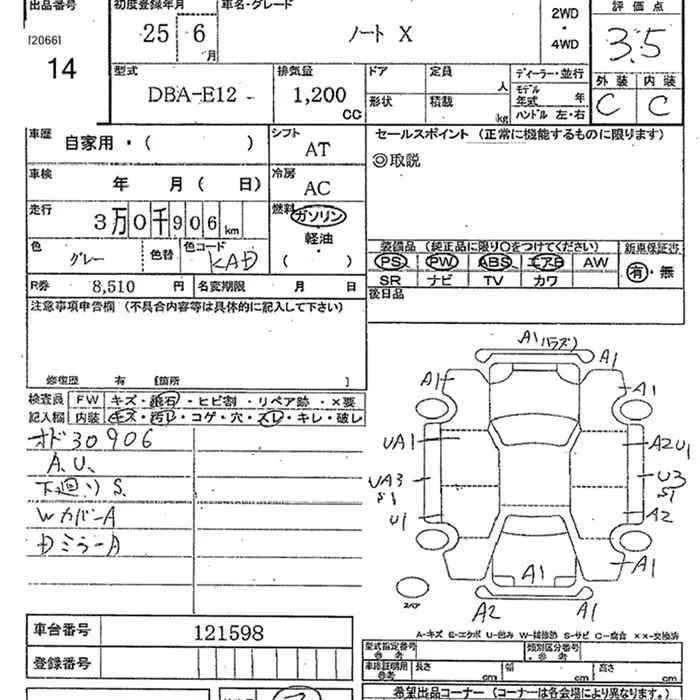 出品番号 初度登録年月 車名・グレード 2WD ・ 4WD 評価点
[2066]
14 25 6月 ノート X 3.5
外装 内装
C C
型式 排気量 ドア 定員 人 ディーラー・並行
DBA-E12 1,200 CC 形状 積載 kg モデル年式 年
ハンドル 左・右
車歴 自家用・( ) シフト AT セールスポイント (正常に機能するものに限ります)
◎取説
車検 年 月( 日) 冷房 AC
走行 3万0千906km 燃料 ガソリン・軽油 ( )
色 グレー 色替 色コード KAD
装備品 (純正品に限り○をつけてください) 新車保証書
PS PW ABS エアB AW 有・無
SR ナビ TV カワ
R券 8,510 円 名変期限 月 日 後日品
注意事項申告欄 (不具合内容等は具体的に記入して下さい)
修復歴 有 [箇所 ]
検査員 FW キズ・飛石・ヒビ割・リペア跡・×要
記入欄 内装 キズ・汚レ・コゲ・穴・スレ・キレ・破レ
オド30906
A.U.
下廻りS.
Wカバー A
DミラーA
A1 バンパ)
A1 A1
A1 A1
UA1 A2U1
UA3 S1 U3 S1
U1 A2
A1 A1
スペア
A2 A1
A-キズ E-エクボ U-凹み W-補修跡 S-サビ C-腐食 XX-交換済
車台番号 121598
型式指定番号 参考 類別区分番号 参考
登録番号
車庫証明用 参考 長さ cm 幅 cm 高さ cm
希望出品コーナー (コーナーは各会場により異なります。)